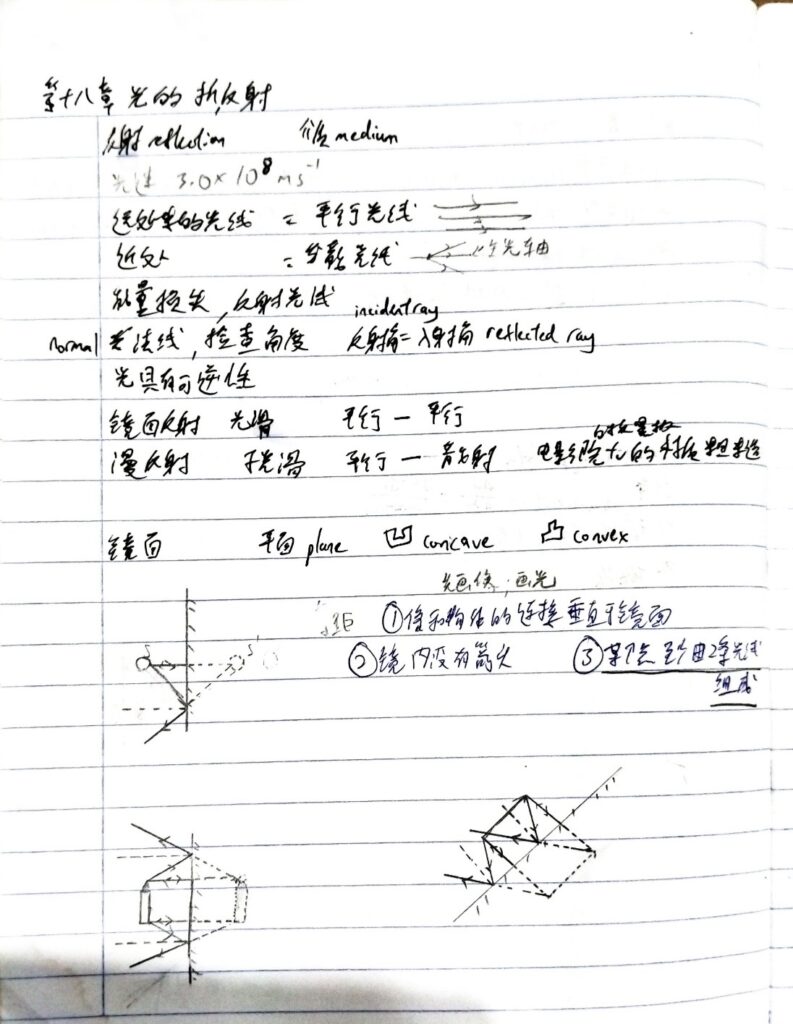 第十八章 光的折,反射
反射 reflection 介质 medium
光速 3.0×10⁸ ms⁻¹
远处来的光线 = 平行光线
近处 = 光线 光轴
能量损失,反射光线
incident ray
normal 法线,检查角度 反射角=入射角 reflected ray
光具有可逆性
镜面反射 光滑 平行 — 平行
漫反射 不光滑 平行 — 电影院 的 粗糙
镜面 平面 plane 凹 concave 凸 convex
先画像,画光
距 ①像和物体的连接垂直于镜面
S S'
②镜内没有箭头 ③某个点至少由2条光线
组成